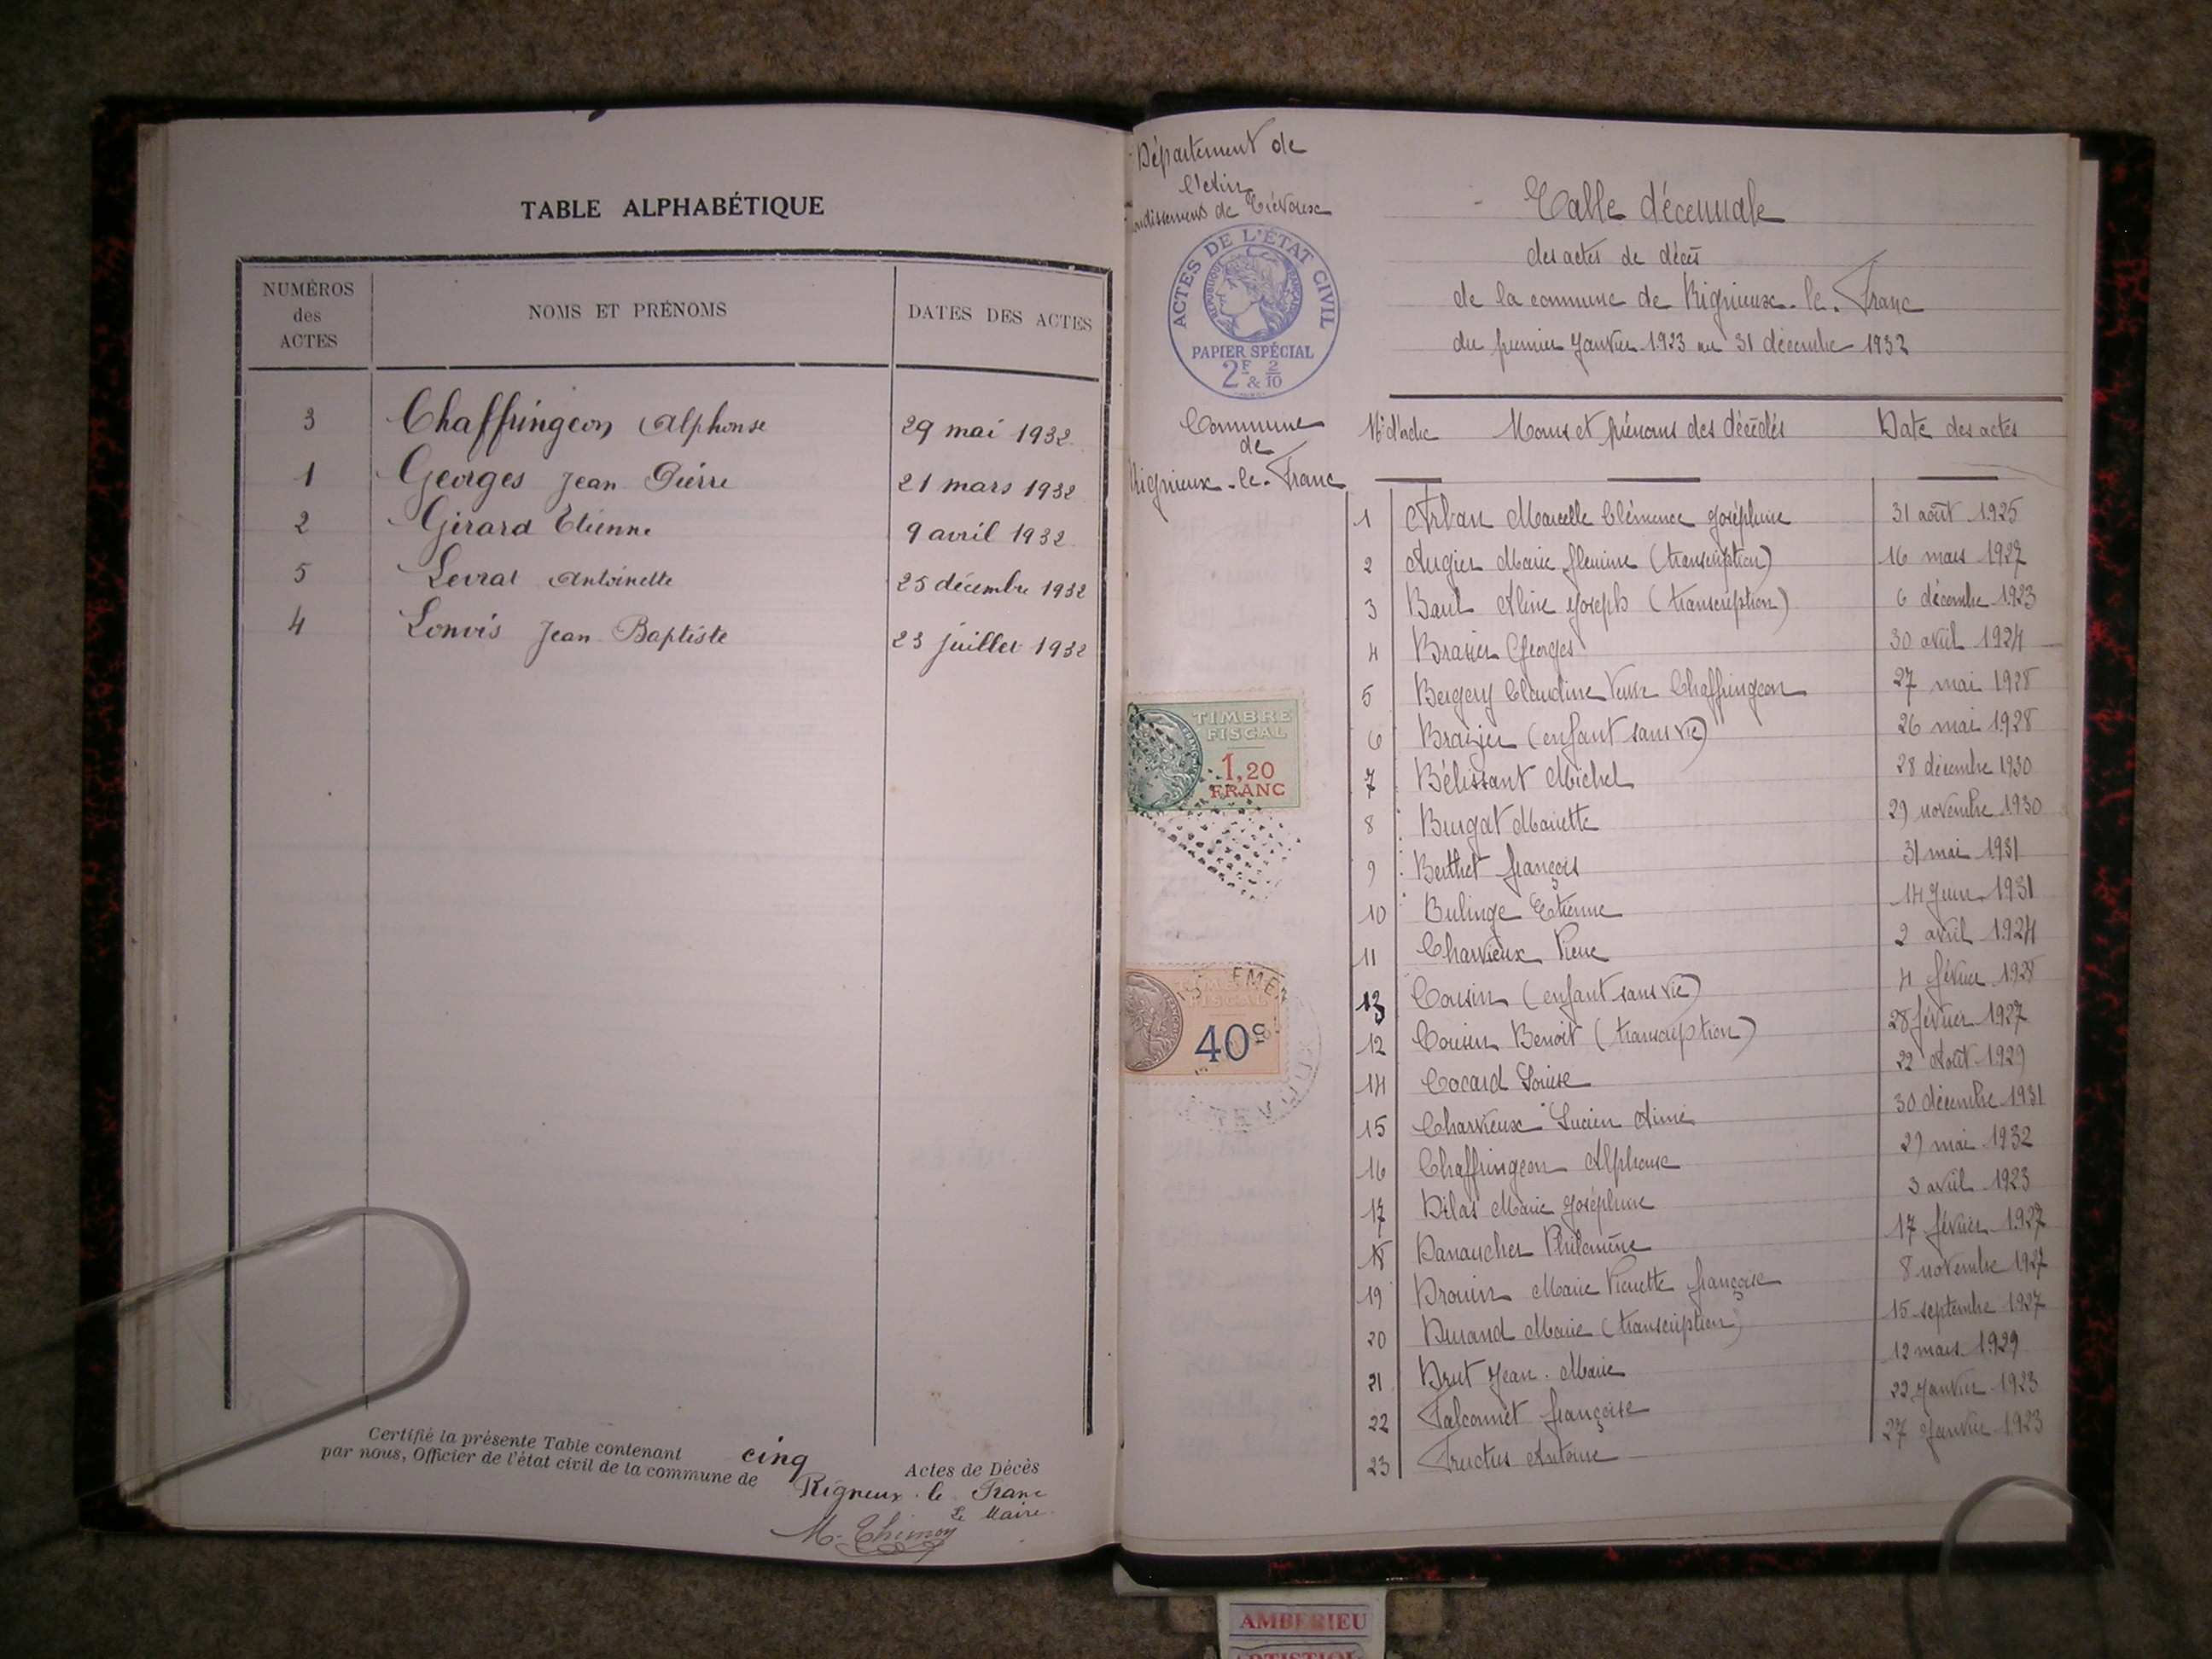 TABLE ALPHABÉTIQUE
NUMÉROS des ACTES NOMS ET PRÉNOMS DATES DES ACTES
3 Chaffringeon Alphonse 29 mai 1932
1 Georges Jean Pierre 21 mars 1932
2 Girard Etienne 9 avril 1932
5 Levrat Antoinette 25 décembre 1932
4 Lonvis Jean Baptiste 23 juillet 1932
Certifié la présente Table contenant cinq Actes de Décès
par nous, Officier de l'état civil de la commune de Rigneux-le-Franc
Le Maire
M. Thimon
Département de
l'Ain
de Trévoux
ACTES DE L'ÉTAT CIVIL
RÉPUBLIQUE FRANÇAISE
PAPIER SPÉCIAL
2F & 2/10
Commune
de
Rignieux-le-Franc
TIMBRE
FISCAL
1,20
FRANC
TIMBRE
FISCAL
40c
Table décennale
des actes de décès
de la commune de Rignieux-le-Franc
du premier Janvier 1923 au 31 décembre 1932
N° d'acte Noms et prénoms des décédés Date des actes
1 Arban Marcelle Clémence Joséphine 31 août 1925
2 Augier Marie (transcription) 16 mars 1927
3 Joseph (transcription) 6 décembre 1923
4 Brasier Georges 30 avril 1924
5 Bergery Claudine Veuve Chaffringeon 27 mai 1928
6 Brazier (enfant sans vie) 26 mai 1928
7 Bélissant Michel 28 décembre 1930
8 Burgat Mariette 29 novembre 1930
9 Berthet françois 31 mai 1931
10 Bulinge Etienne 14 Juin 1931
11 Charvieux Pierre 2 avril 1924
13 Cousin (enfant sans vie) 4 février 1928
12 Cousin Benoit (transcription) 28 février 1927
14 Cocard Louise 22 Août 1929
15 Charvieux Lucien Aimé 30 décembre 1931
16 Chaffringeon Alphonse 29 mai 1932
17 Marie Joséphine 3 avril 1923
18 Danancher Philomène 17 février 1927
19 Drouin Marie Pierrette françoise 8 novembre 1927
20 Durand Marie (transcription) 15 septembre 1927
21 Drut Jean-Marie 12 mars 1929
22 Falconnet françoise 22 Janvier 1923
23 Fructus Antoine 27 Janvier 1923
AMBERIEU